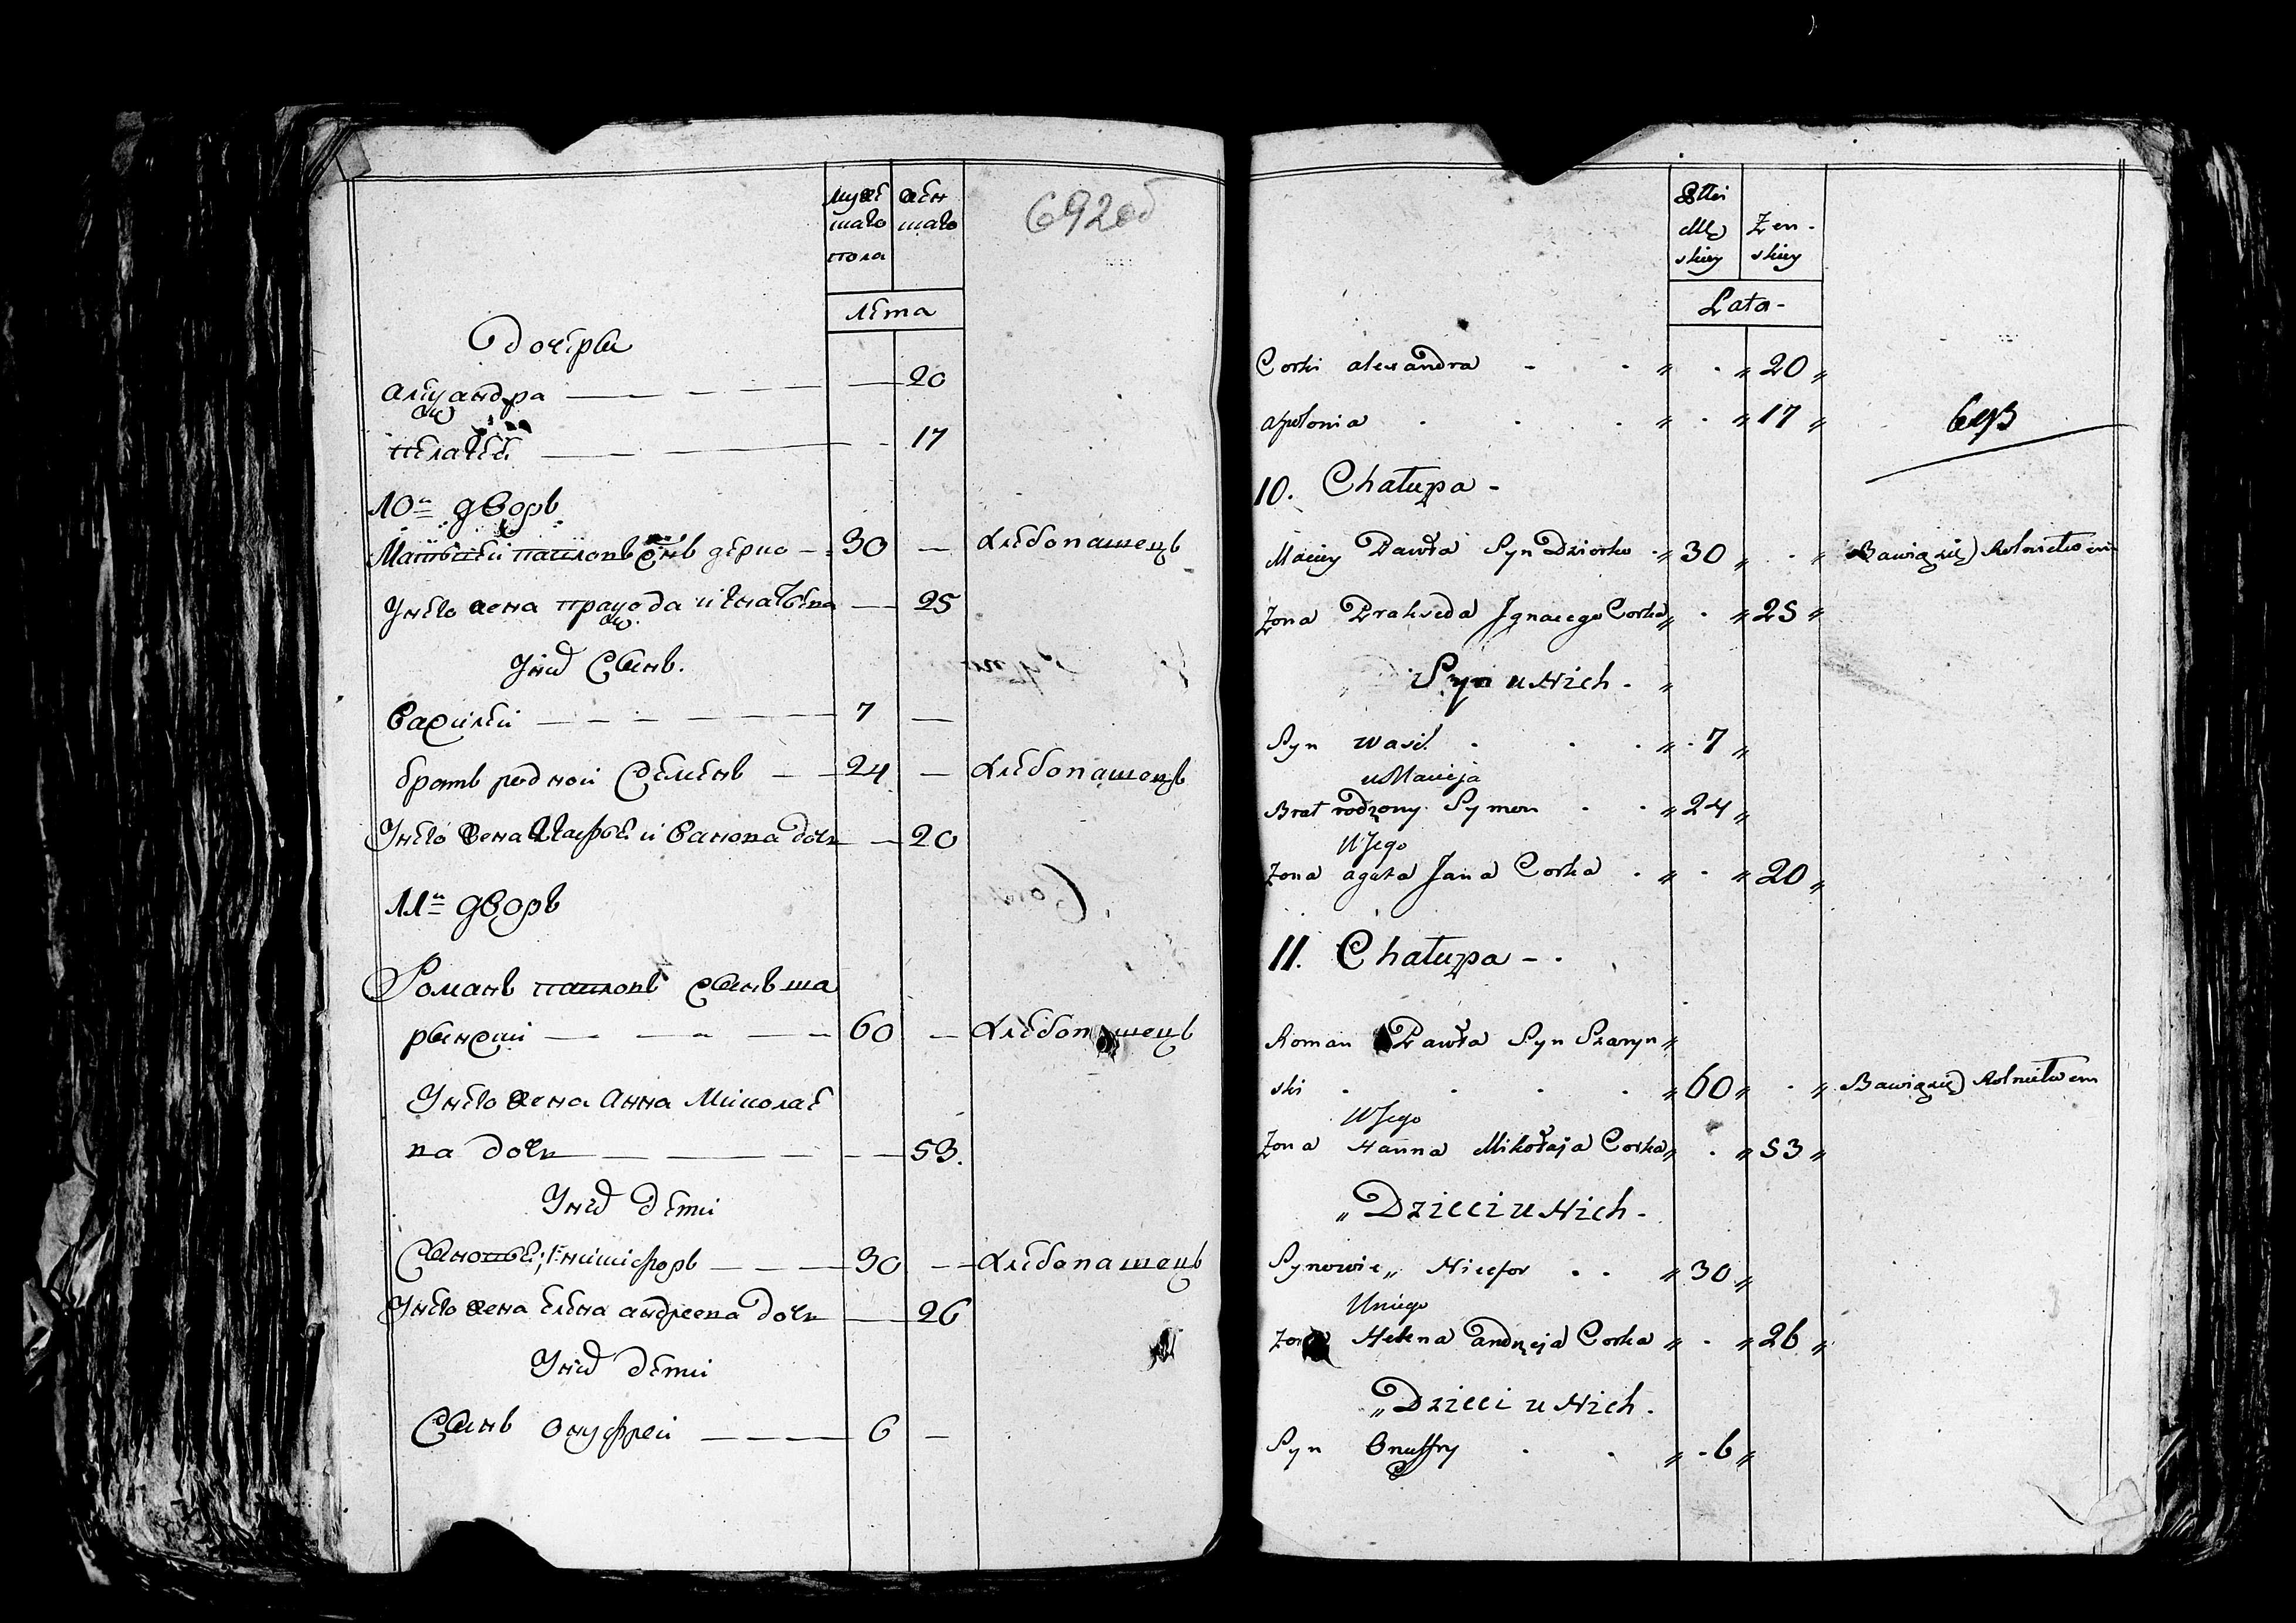 мужескаго пола женскаго
692об
лѣта
Дочери
александра — 20
пелагея — 17
10й дворъ
Матвей павловъ сынъ дерко — 30 — хлебопашецъ
Унего жена праседа игнатьева — 25
Уних Сынъ.
василей — 7 —
братъ родной Семенъ — 24 — хлебопашецъ
Унего жена Агафья иванова дочь — 20
11й дворъ
Романъ павловъ сынъ ша
рынский — 60 — хлебопашецъ
Унего жена Анна Миколае
ва дочь — 53.
Уних дети
Сыновья; 1й никифоръ — 30 — хлебопашецъ
Унего жена елена андреева дочь — 26
Уних дети
Сынъ онуфрей — 6 —
Płci Męskiey Żenskiey
Lata -
Corki alexandra " . " 20 "
apolonia " . " 17 "
693
10. Chałupa -
Maciey Pawła Syn Dziorko " 30 " . " Bawią się Rolnictwem
Zona Prakseda Jgnacego Corka " . " 25 "
Syn u Nich - "
Syn wasil " . 7 "
u Macieja
Brat rodzony Symon " 24 "
U Jego
Zona agata Jana Corka " . " 20 "
11. Chałupa - .
Roman Pawła Syn Szaryn "
ski " 60 " . " Bawią się Rolnictwem
U Jego
Zona Hanna Mikołaja Corka " . " 53 "
" Dzieci u Nich -
Synowie " Nicefor " 30 "
U niego
Zona Helena andrzeja Corka " . " 26 "
" Dzieci u Nich .
Syn Onuffry " - 6 "